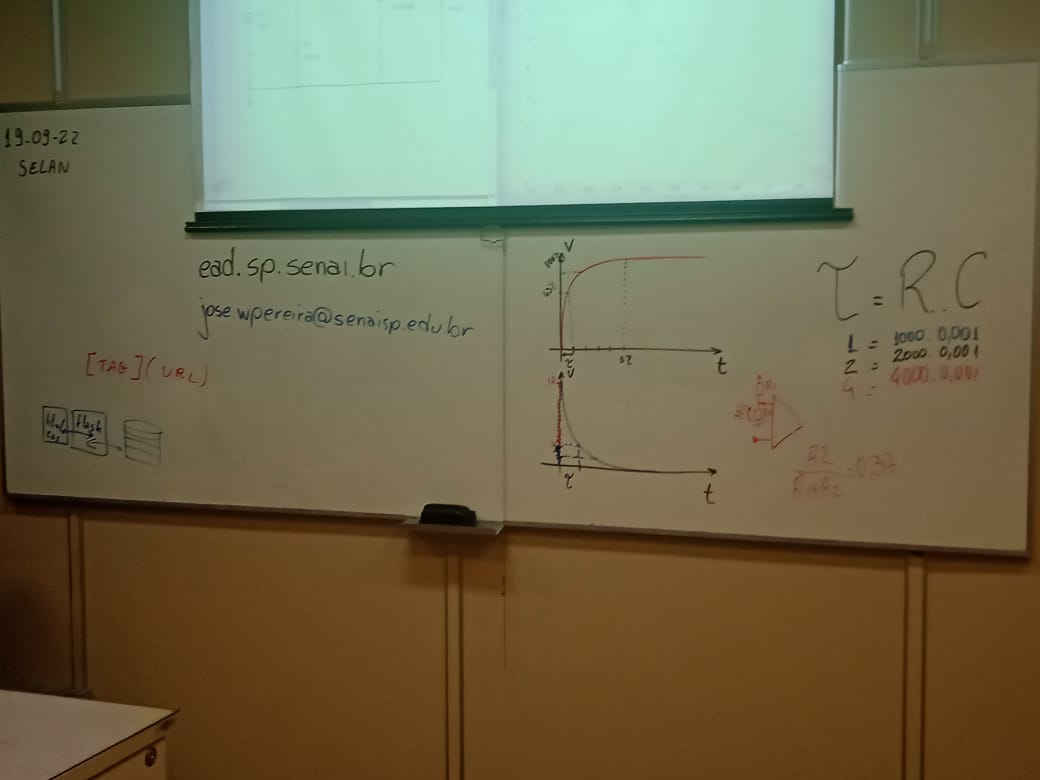 19-09-22
SELAN
ead.sp.senai.br
jose.wpereira@senaisp.edu.br
[TAG](URL)
flask
V
100%
t
τ
5τ
V
t
τ
τ = R.C
1 = 1000.0,001
2 = 2000.0,001
4 = 4000.0,001
R1
R2
R1+R2
=0,37